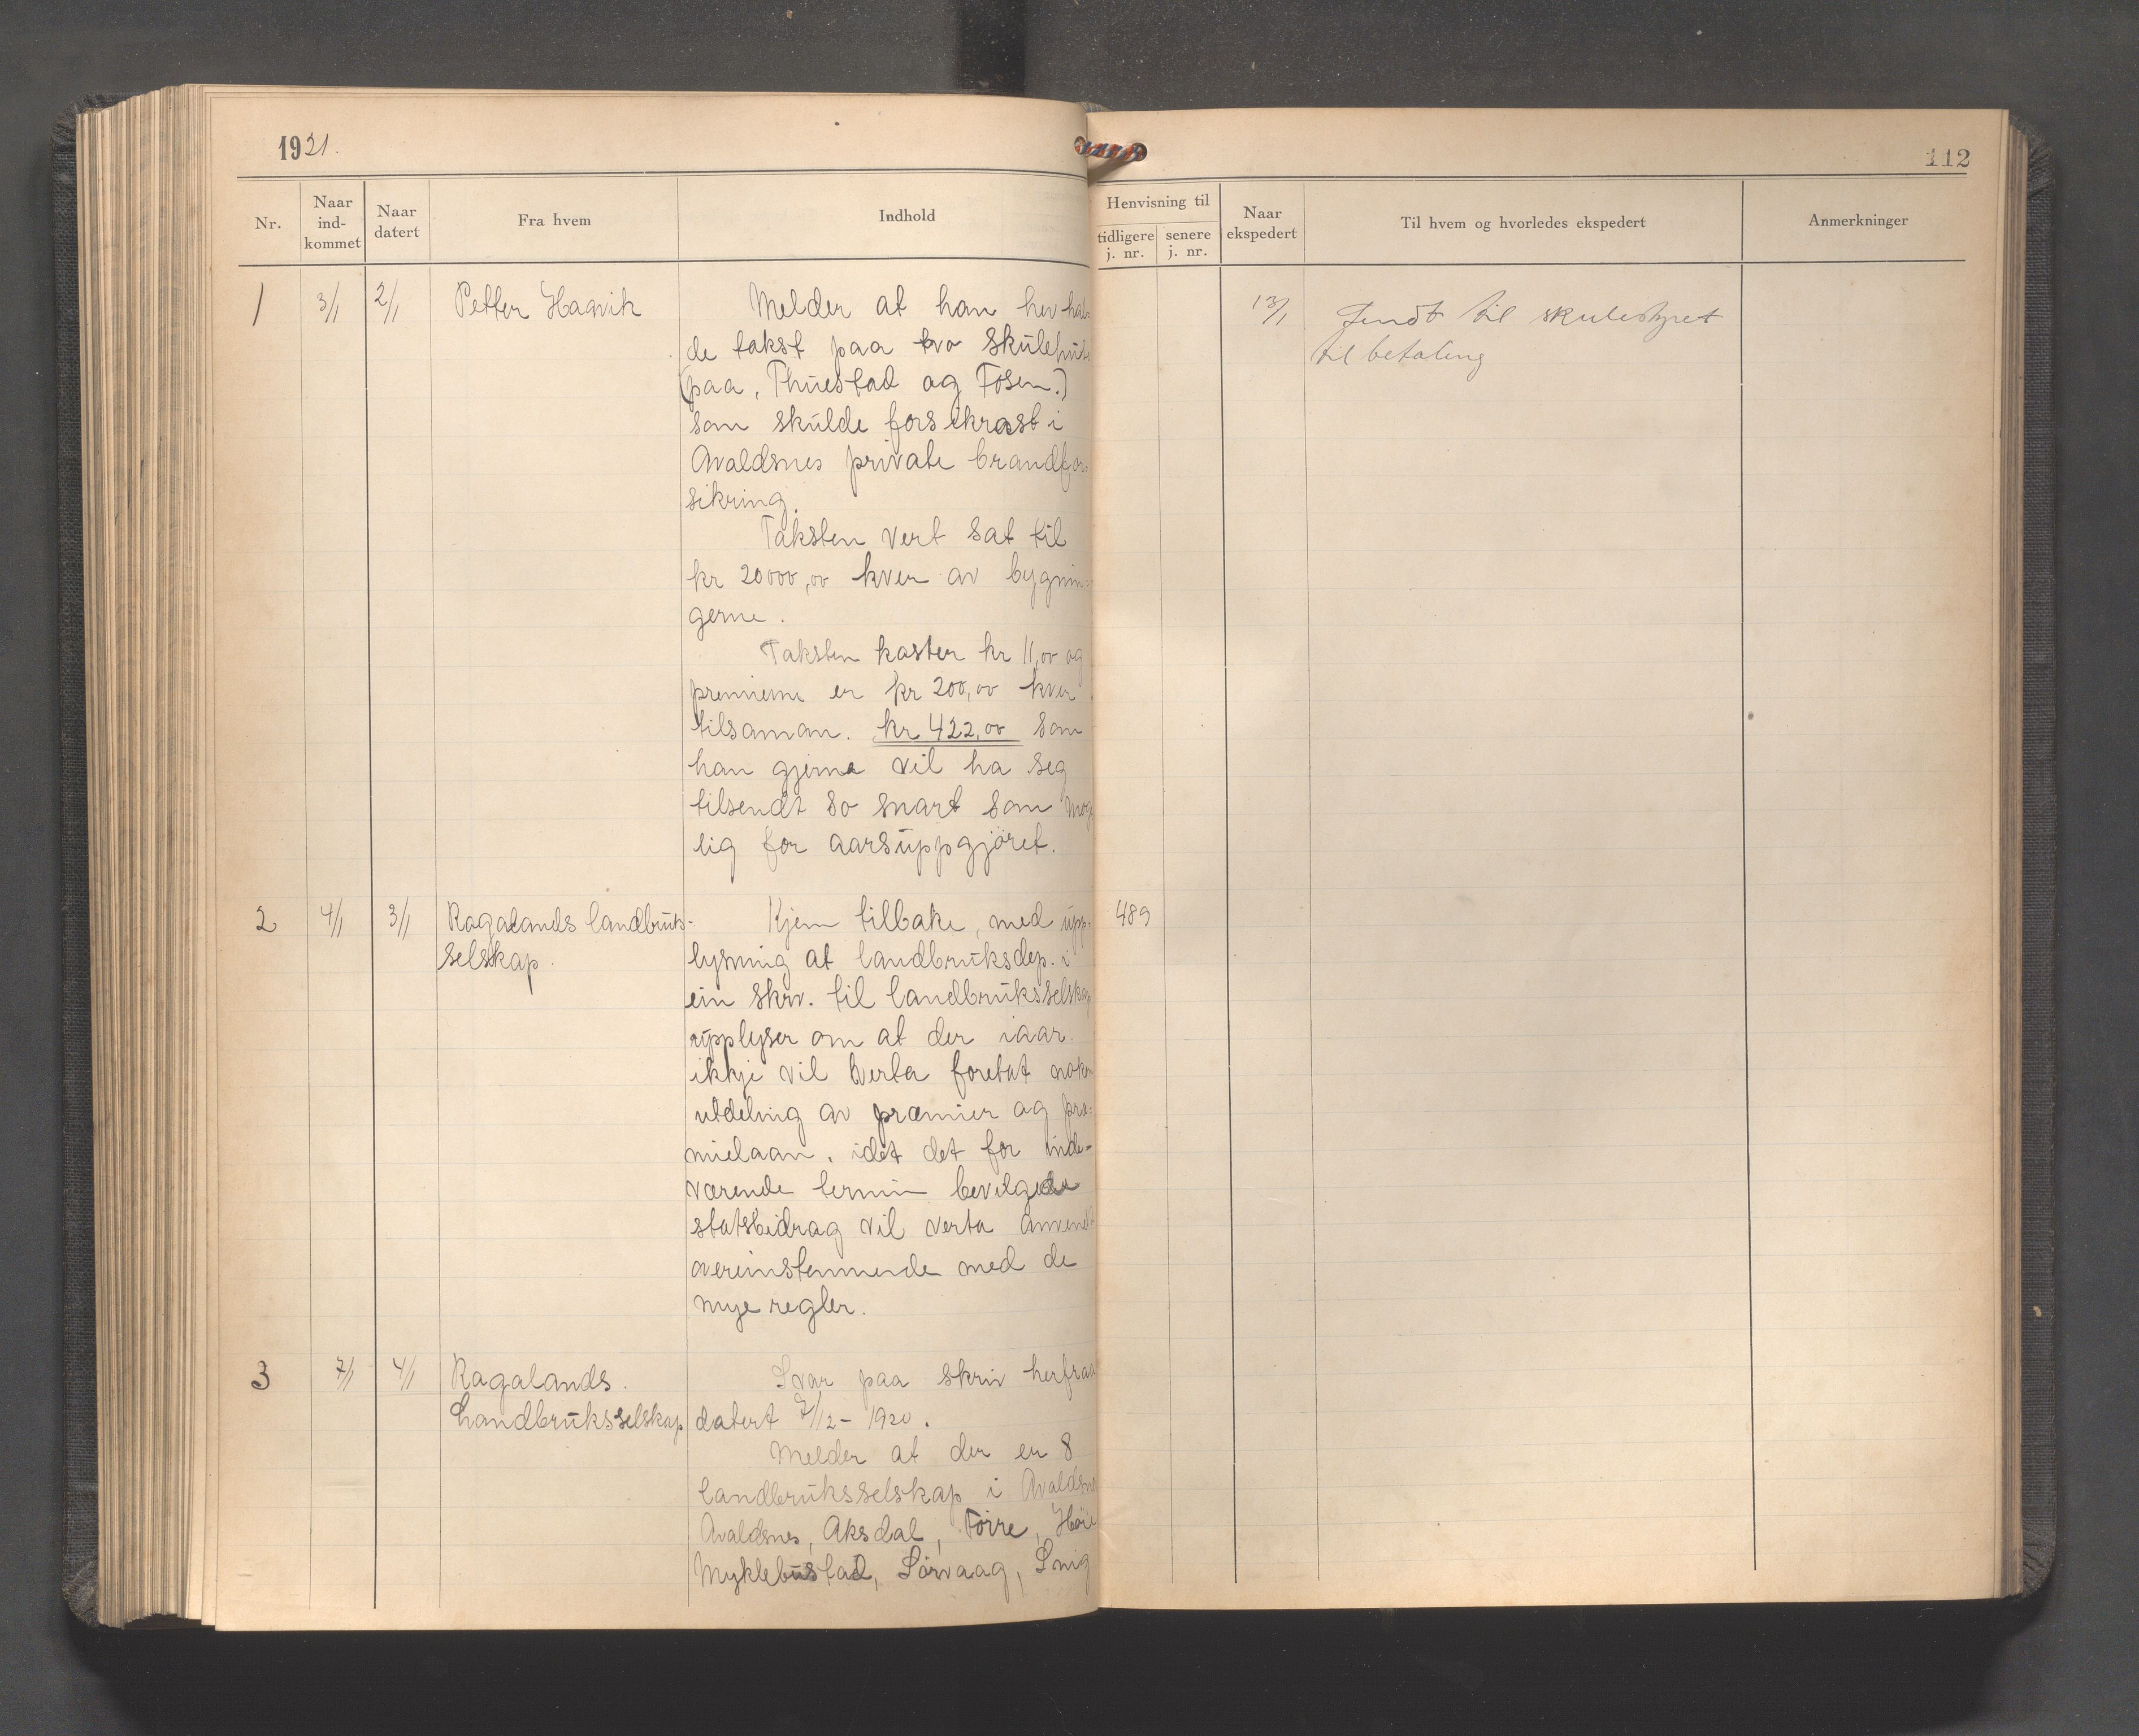 1921.
112
Nr.
Naar ind-kommet
Naar datert
Fra hvem
Indhold
Henvisning til
tidligere j. nr.
senere j. nr.
Naar ekspedert
Til hvem og hvorledes ekspedert
Anmerkninger
1 3/1 2/1 Petter Haavik Melder at han hev hal-
de takst paa tvo skulehus
(paa, Thuestad og Fosen.)
som skulde forsikrast i
Avaldsnes private brandfor-
sikring.
Taksten vert sat til
kr 20000,00 kver av bygnin-
gerne.
Taksten koster kr 11,00 og
premierne er kr 200,00 kver
tilsaman. kr 422,00 som
han gjerne vil ha seg
tilsendt so snart som mog
lig for aarsuppgjöret.
13/1 Sendt til skulestyret
til betaling
2 4/1 3/1 Rogalands landbruks- Kjem tilbake, med upp- 489
selskap. lysning at landbruksdep. i
ein skrv. til landbruksselskap
upplyser om at der iaar
ikkje vil verta foretat noken
utdeling av præmier og præ-
mielaan, idet det for inde-
værende termin bevilgede
statsbidrag vil verta anvendt
overeinstemmende med de
nye regler.
3 7/1 4/1 Rogalands. Svar paa skriv herfraa
Landbruksselskap datert 7/12 - 1920.
Melder at der er 8
landbruksselskap i Avaldsnes
Avaldsnes, Aksdal, Förre,
Myklebustad, Sörvaag, Snig